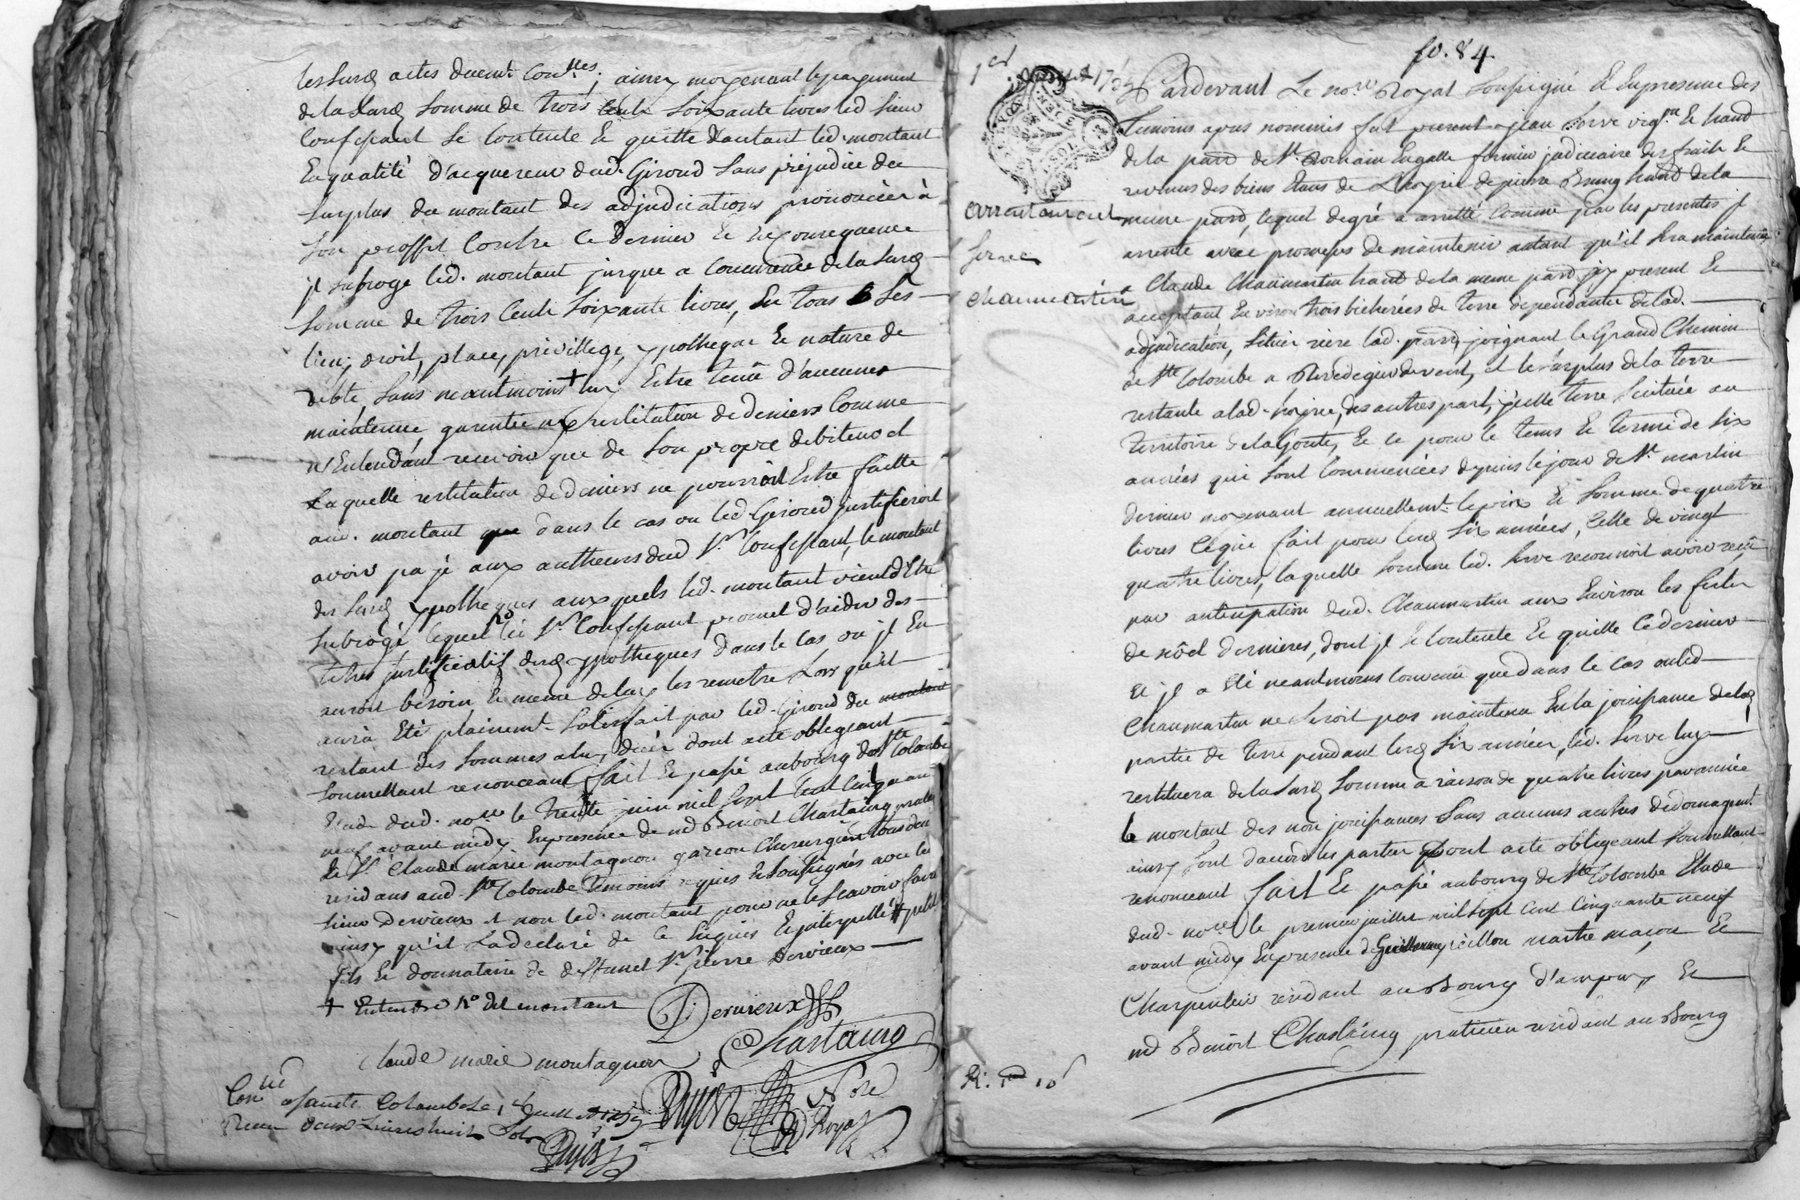 les susd actes duemt. Con.lles; ainsy moyenant le payement
de la susd somme de trois cents soixante livres led. sieur
Confessant se contente et quitte d'autant led. montant
En qualité d'acquereur dud. Giroud sans prejudice du
surplus du montant des adjudications prononcées à
son proffit contre ce dernier et en consequence
il subroge led. montant jusque a concurence de la susd
somme de trois cents soixante livres, En tous Ses
lieu, droit, place, privillege, ypotheque et nature de
debte sans neantmoins + luy Estre tenû d'aucune
maintenüe, garentie ny restitution de deniers Comme
n'Entendant recevoir que de son propre debiteur et
Laquelle restitution de deniers ne pourroit Estre faitte
aud. montant que dans le cas ou led. Giroud justifieroit
avoir payé aux autheurs dud Sr. Confessant, le montant
des susd ypotheques auxquels led. montant vient d'Etre
subrogé lequel led Sr. Confessant promet d'aider des
titres justificatifs desd ypotheques dans le cas ou il En
auroit besoin et meme de luy les remettre Lors qu'il
aura Eté plainemt. satisfait par led. Giroud du montant
restant des sommes a luy düés dont acte obligeant
soumettant renonceant fait et passé au bourg de Ste Colombe
Etude dud. nore le trente juin mil sept cent cinquante
neuf avant midy En presence de md Benoit Chastaing praticien
et Sr. Claude marie montagnon garcon Chirurgien tous deux
residans aud. Ste Colombe temoins requis et soussignés avec led
sieur Dervieux et non led. montant pour ne le scavoir faire
ainsy qu'il La declaré de ce Enquis et interpellé # petit
fils et donnataire de deffunct Sr. pierre Dervieux
+ Entendre Ro Del montant
Dervieux
Chastaing
Claude marie montagnon
Nore
Royal
Con.lle a sainte Colombe Le 1er
Reçu deux Livres huit sols
fo. 84.
1er
Pardevant Le nore Royal soussigné Et En presence des
temoins apres nommés fut present jean Serve vign.on habt
de la parr de St. Romain En galle fermier judiciaire des fruits Et
revenus des biens Etans de L'hoyrie de pierre Bruny habt de la
meme parr, lequel de gré a arrenté comme par les presentes il
Arrentement
arrente avec promesses de maintenir autant qu'il sera maintenu
Serve
a Claude Chaumartin habt de la meme parr icy present Et
Chaumartin
acceptant Environ trois bicherées de terre dependante de lad.
adjudication, situées riere lad. parr, joignant le Grand Chemin
de Ste Colombe a Rivedegier de vent, et le surplus de la terre
restante a lad. hoyrie, des autres part, icelle terre scituée au
territoire de la Goute, Et ce pour le tems Et terme de six
années qui sont Commencées depuis le jour de St. martin
dernier moyenant annuellemt. le prix Et somme de quatre
livres Ce qui fait pour lesd six années, Celle de vingt
quatre livres, laquelle somme led. Serve reconnoit avoir reçüe
par anticipation dud. Chaumartin aux Environ les festes
de nöel dernieres, dont il se contente Et quitte ce dernier
Et il a Eté neantmoins convenu que dans le cas ou led
Chaumartin ne seroit pas maintenu En la jouissance de lad
partie de terre pendant lesd six années, led. Serve luy
restituera de la susd somme a raison de quatre livres par année
le montant des non jouissances sans aucuns autres dedomagemt.
ainsy sont d'accord les parties dont acte obligeant soumettant
renonceant fait Et passé au bourg de Ste Colombe Etude
dud. nore le premier juillet mil sept cent cinquante neuf
avant midy En presence de Guillaume reillon maitre maçon Et
Charpentier residant au Bourg d'ampuy Et
md Benoit Chastaing praticien residant au Bourg